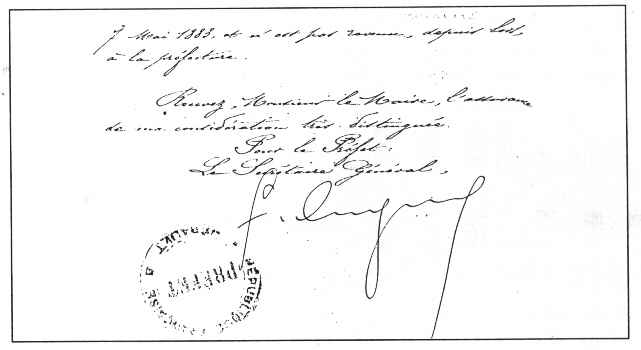 7 Mai 1883, et n'est pas revenu, depuis lors,
à la préfecture.
Recevez, Monsieur le Maire, l'assurance
de ma considération très distinguée.
Pour le Préfet:
Le Secrétaire Général,
RÉPUBLIQUE FRANÇAISE
PRÉFET
HÉRAULT